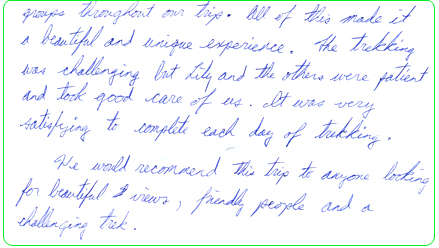 groups throughout our trip. All of this made it
a beautiful and unique experience. The trekking
was challenging but Lily and the others were patient
and took good care of us. It was very
satisfying to complete each day of trekking.
We would recommend this trip to anyone looking
for beautiful views, friendly people and a
challenging trek.